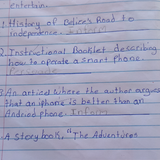 entertain.
1) History of Belize's Road to
independence. Inform
2) Instructional Booklet describing
how to operate a smart phone.
Persuade
3. An articel where the author argues
that an iphone is better than an
Android phone. Inform
A Story book, "The Adventures